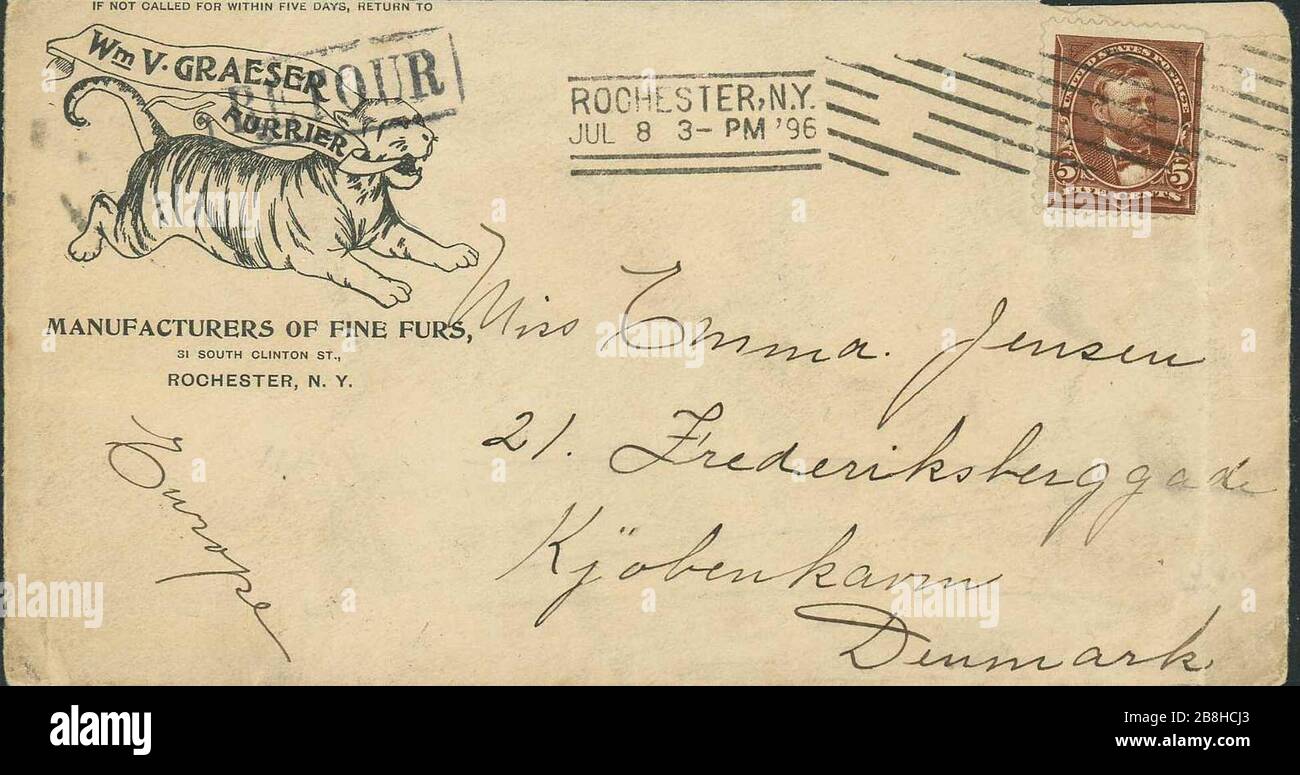 IF NOT CALLED FOR WITHIN FIVE DAYS, RETURN TO
Wm V. GRAESER
FURRIER
RETOUR
MANUFACTURERS OF FINE FURS,
31 SOUTH CLINTON ST.,
ROCHESTER, N. Y.
ROCHESTER, N.Y.
JUL 8 3-PM '96
UNITED STATES POSTAGE
5 5
FIVE CENTS
Miss Emma. Jensen
21. Frederiksberggade
Kjöbenkavn
Denmark.
Europe
alamy
Image ID: 2B8HCJ3
www.alamy.com